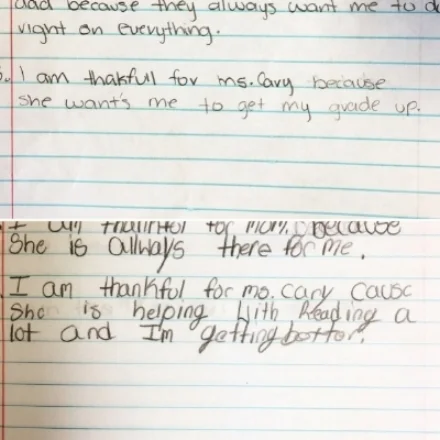 dad because they always want me to do
right on everything.
I am thakfull for ms. Cary because
she want's me to get my grade up.
I am thankful for mom. because
She is allways there for me.
I am thankful for ms. cary cause
She is helping with Reading a
lot and I'm getting better.